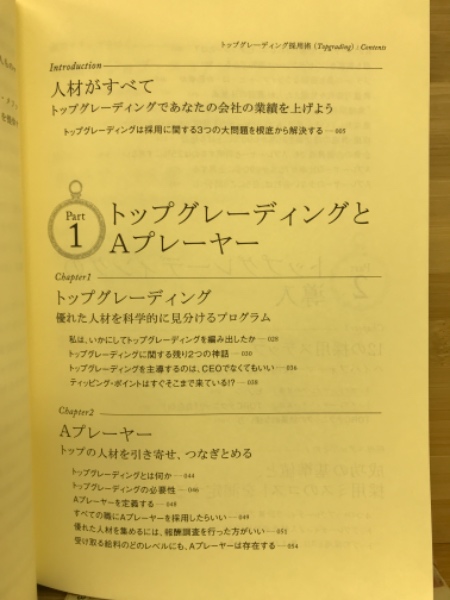 トップグレーディング採用術(Topgrading):Contents
Introduction
人材がすべて
トップグレーディングであなたの会社の業績を上げよう
トップグレーディングは採用に関する3つの大問題を根底から解決する…005
Part
1
トップグレーディングと
Aプレーヤー
Chapter1
トップグレーディング
優れた人材を科学的に見分けるプログラム
私は、いかにしてトップグレーディングを編み出したか…028
トップグレーディングに関する残り2つの神話…030
トップグレーディングを主導するのは、CEOでなくてもいい…036
ティッピング・ポイントはすぐそこまで来ている!?…038
Chapter2
Aプレーヤー
トップの人材を引き寄せ、つなぎとめる
トップグレーディングとは何か…044
トップグレーディングの必要性…046
Aプレーヤーを定義する…048
すべての職にAプレーヤーを採用したらいい…049
優れた人材を集めるには、報酬調査を行った方がいい…051
受け取る給料のどのレベルにも、Aプレーヤーは存在する…054